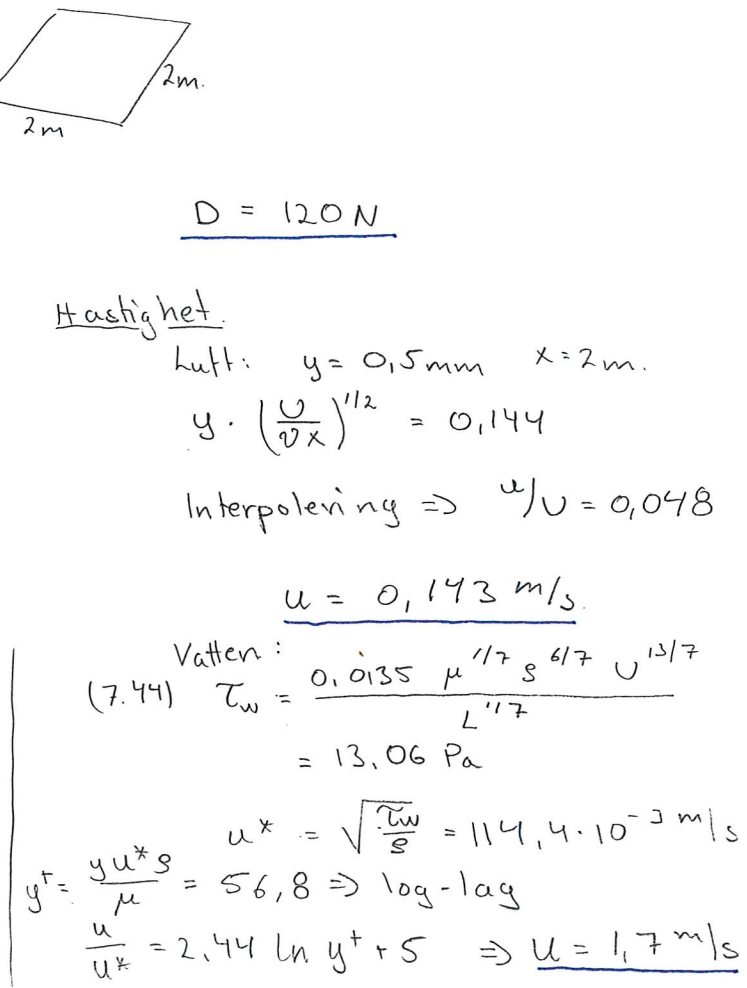 2m.
2m
D = 120N
Hastighet.
Luft: y = 0,5mm x = 2m.
y · (U/νx)^1/2 = 0,144
Interpolering => u/U = 0,048
u = 0,143 m/s.
Vatten:
(7.44) τw = 0.0135 μ^1/7 ρ^6/7 U^13/7 / L^1/7
= 13,06 Pa
u* = √(τw/ρ) = 114,4·10^-3 m/s
y+ = yu*ρ/μ = 56,8 => log-lag
u/u* = 2,44 ln y+ + 5 => u = 1,7 m/s